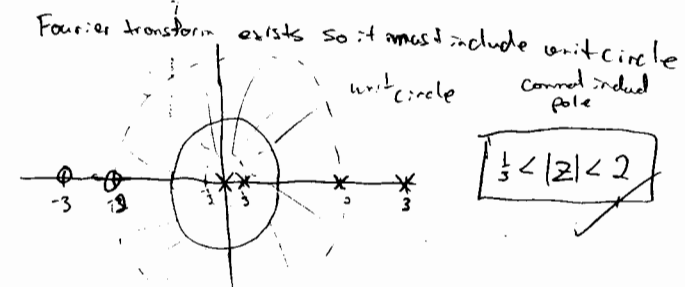 Fourier transform exists so it must include unit circle
unit circle
cannot includ
pole
1/3 < |z| < 2
-3
3